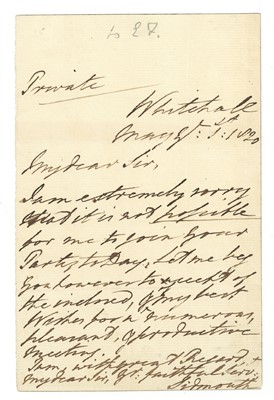 Private
Whitehall
May 1st: 1820
My dear Sir,
I am extremely sorry
that it is not possible
for me to join your
Party to Day. Let me beg
you however to accept of
the enclosed, & my best
Wishes for a numerous,
pleasant, & productive
meeting.
I am, with great Regard,
My dear Sir, yr: faithful Servt:
Sidmouth